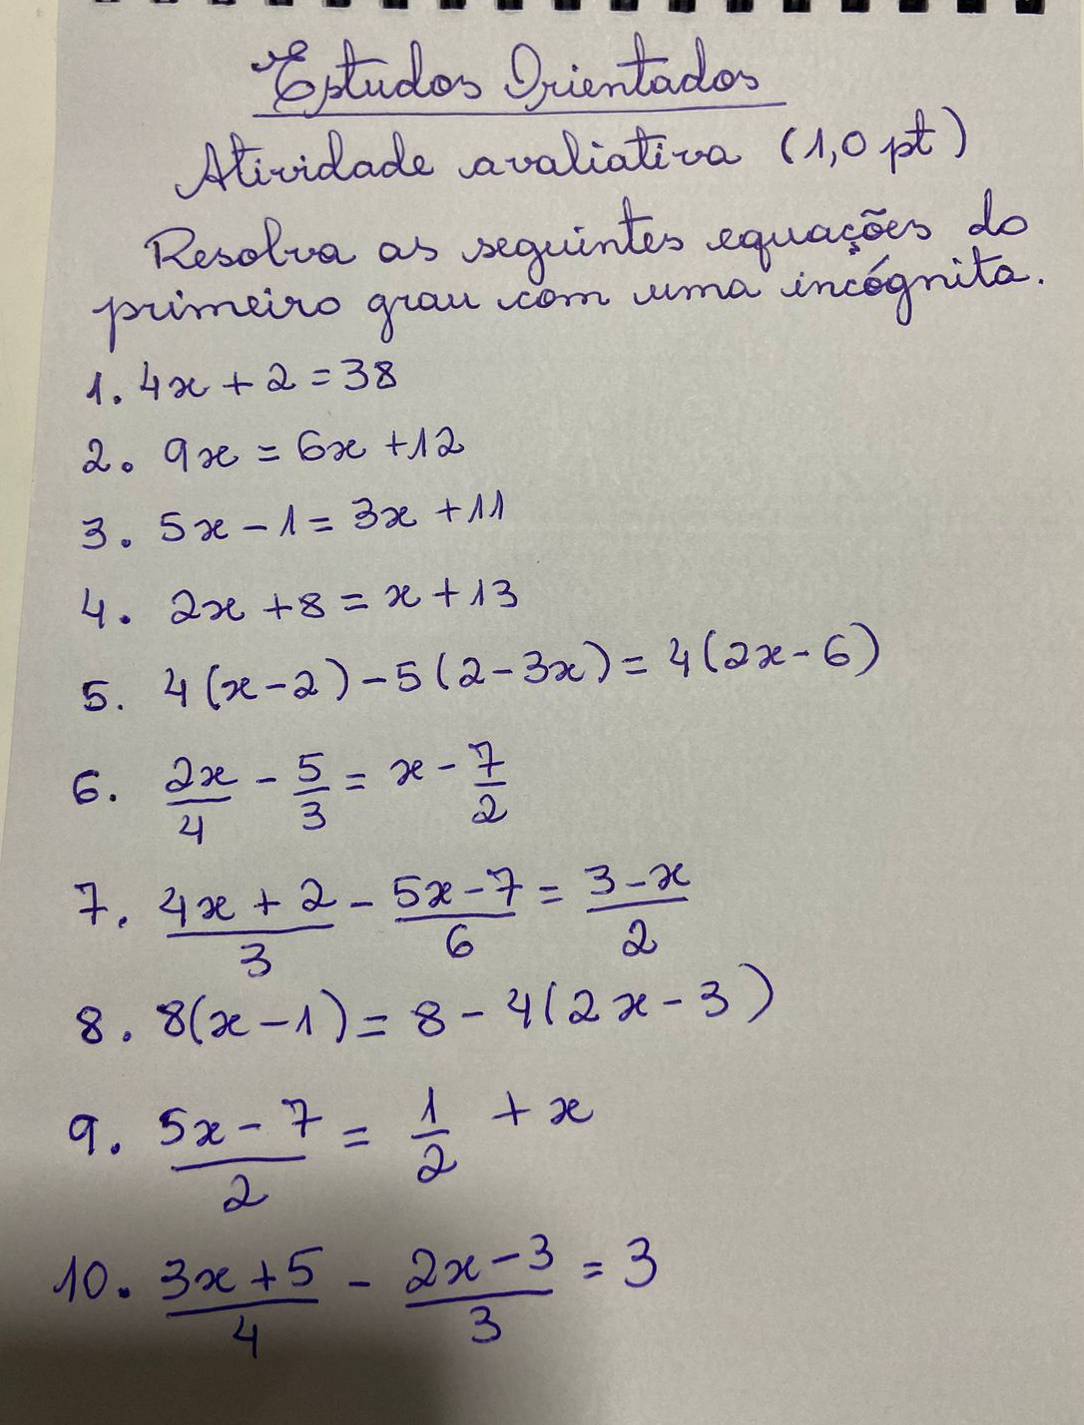 Estudos Orientados
Atividade avaliativa (1,0 pt)
Resolva as seguintes equações do
primeiro grau com uma incógnita.
1. 4x + 2 = 38
2. 9x = 6x + 12
3. 5x - 1 = 3x + 11
4. 2x + 8 = x + 13
5. 4(x - 2) - 5(2 - 3x) = 4(2x - 6)
6. 2x/4 - 5/3 = x - 7/2
7. (4x + 2)/3 - (5x - 7)/6 = (3 - x)/2
8. 8(x - 1) = 8 - 4(2x - 3)
9. (5x - 7)/2 = 1/2 + x
10. (3x + 5)/4 - (2x - 3)/3 = 3